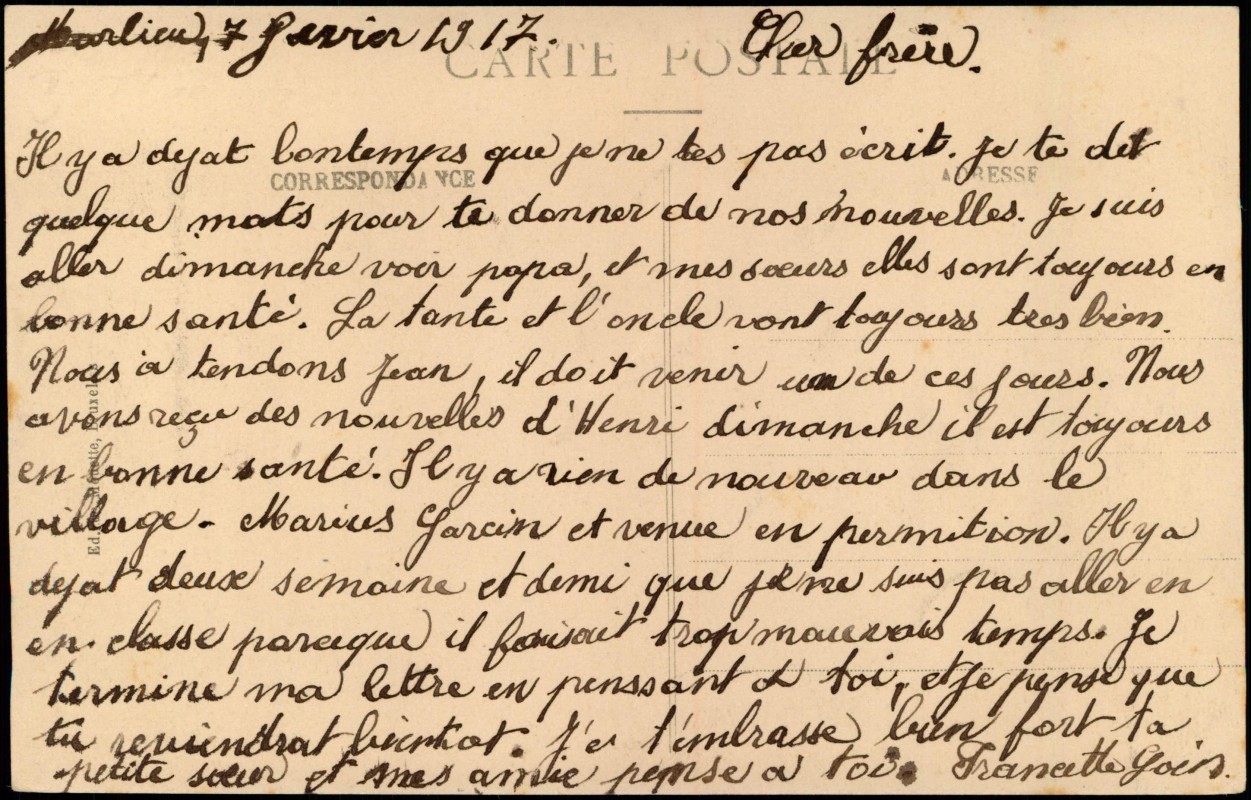 Marlieu, 7 Gevrier 1917. Cher frère.
CARTE POSTALE
Il y a deyat lontemps que je ne tes pas écrit. Je te det
CORRESPONDANCE ADRESSE
quelque mots pour te donner de nos nouvelles. Je suis
aller dimanche voir papa, et mes soeurs elles sont toujours en
bonne santé. La tante et l'oncle vont toujours tres bien.
Nous a tendons Jean, il doit venir un de ces jours. Nous
avons reçu des nouvelles d'Henri dimanche il est toujours
en bonne santé. Il y a rien de nouveau dans le
village. Marius Garcin et venue en permition. Il y a
deyat deux semaine et demi que je ne suis pas aller en
en classe parceque il faisait trop mauvais temps. Je
termine ma lettre en penssant a toi, et je pense que
tu reviendrat bientot. Je t'embrasse bien fort ta
petite soeur et mes amie pense a toi. Francette Goin.
Ed.